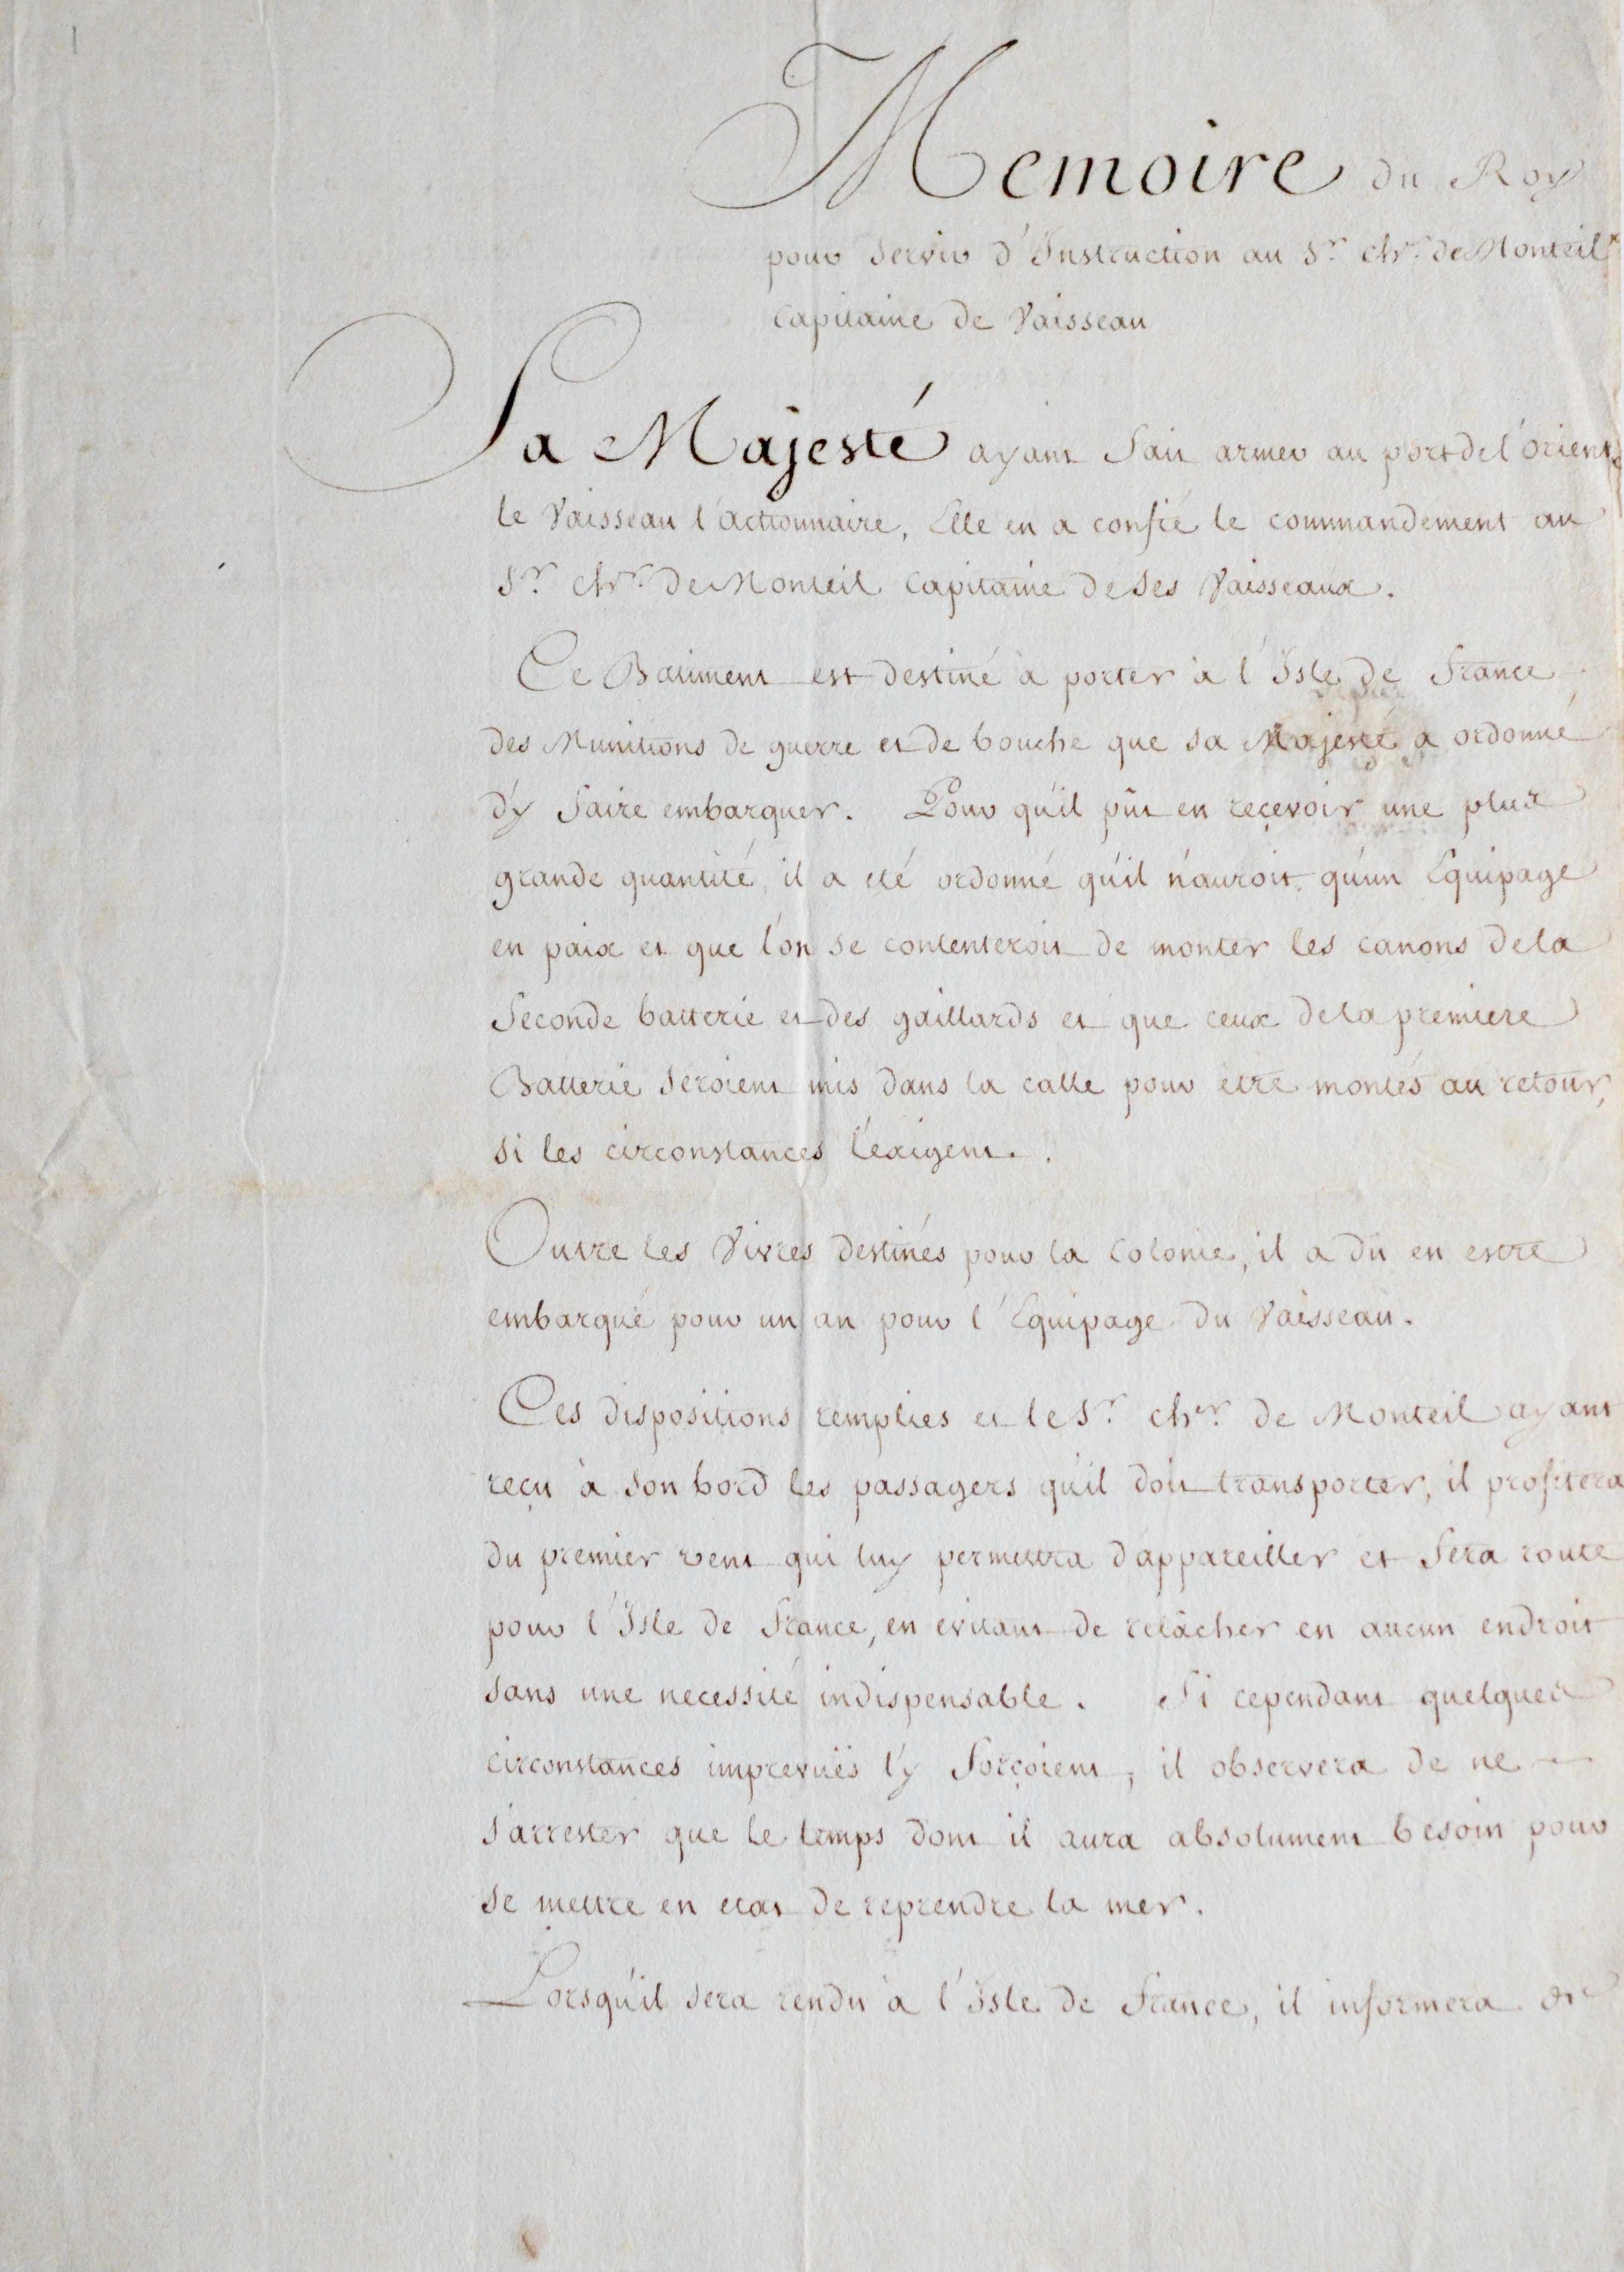 Memoire du Roy
pour servir d'Instruction au Sr. chr. de Monteil
Capitaine de Vaisseau
Sa Majesté ayant fait armer au port de l'orient
le Vaisseau l'actionnaire, Elle en a confié le commandement au
Sr. chr. de Monteil Capitaine de ses Vaisseaux.
Ce Batiment est destiné à porter à l'Isle de france
des Munitions de guerre et de bouche que sa Majesté a ordonné
d'y faire embarquer. Pour qu'il pût en reçevoir une plus
grande quantité, il a eté ordonné qu'il n'auroit qu'un Equipage
en paix et que l'on se contenteroit de monter les canons de la
Seconde batterie et des gaillards et que ceux de la premiere
Batterie seroient mis dans la calle pour etre montés au retour,
si les circonstances l'exigent.
Outre les Vivres destinés pour la Colonie, il a dû en estre
embarqué pour un an pour l'Equipage du Vaisseau.
Ces dispositions remplies et le Sr. cher. de Monteil ayant
reçu à son bord les passagers qu'il doit transporter, il profitera
du premier vent qui luy permettra d'appareiller et fera route
pour l'Isle de france, en evitant de relâcher en aucun endroit
sans une necessité indispensable. Si cependant quelques
circonstances imprevuës l'y forçoient, il observera de ne
s'arrester que le temps dont il aura absolument besoin pour
se mettre en etat de reprendre la mer.
Lorsqu'il sera rendu à l'Isle de france, il informera